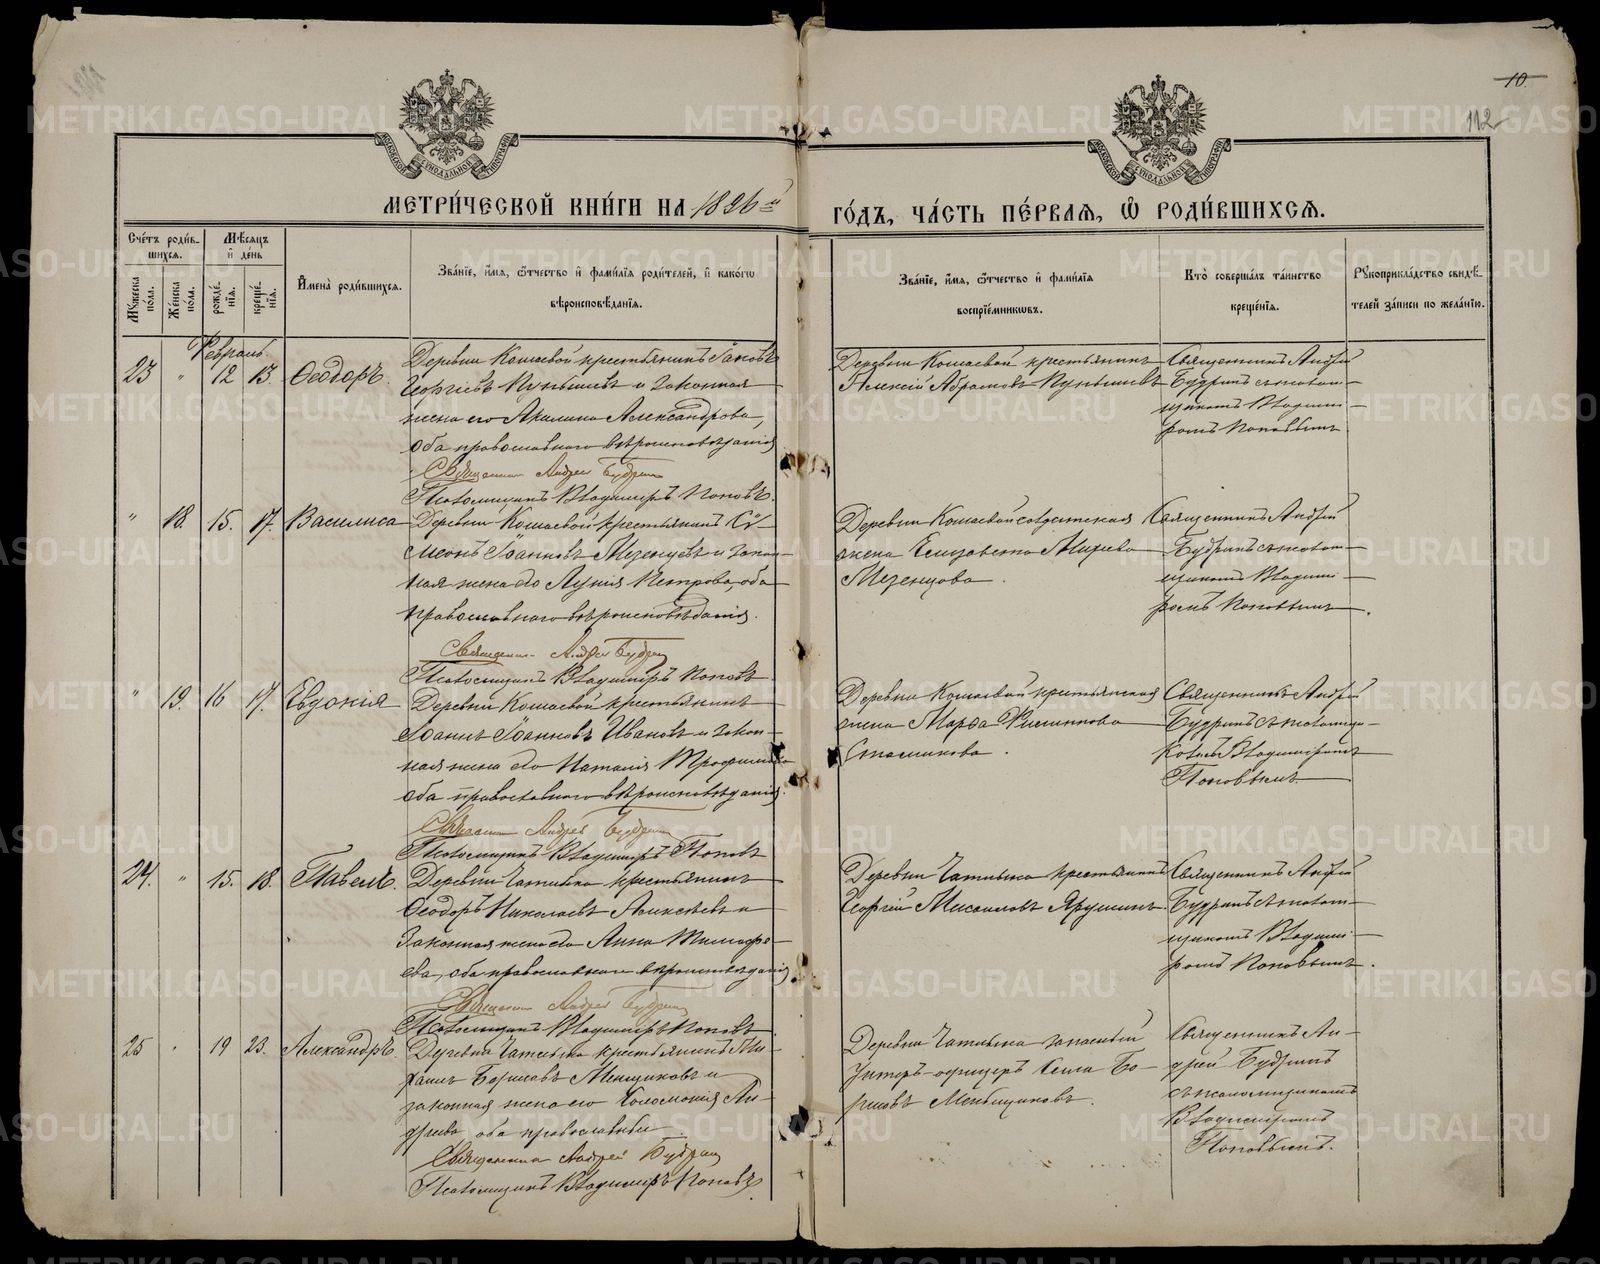 10
112
МЕТРИ́ЧЕСКОЙ КНИ́ГИ НА 1896 й ГО́ДЪ, ЧА́СТЬ ПЕ́РВАЯ, Ѡ РОДИ́ВШИХСЯ.
Сче́тъ роди́в-
шихся.
Мѣ́сяцъ
и҆ де́нь
Му́жеска по́ла.
Же́нска по́ла.
рожде́-
нїѧ.
креще́-
нїѧ.
И҆мена̀ роди́вшихся.
Зва́нїе, и҆́мѧ, ѿчество и҆ фами́лїѧ роди́телей, и҆ како́гѡ
вѣроисповѣ́данїѧ.
Зва́нїе, и҆́мѧ, ѿчество и҆ фами́лїѧ
воспрїе́мникѡвъ.
Кто̀ соверша́лъ та́инство
креще́нїѧ.
Рꙋкоприкла́дство свидѣ́-
телей за́писи по жела́нїю.
Февраль.
23 " 12 13. Ѳеодоръ.
Деревни Кошаевой крестьянинъ Іаковъ
Георгіевъ и законная
жена его Акилина Александрова,
оба православнаго вѣроисповѣданія
Священникъ Андрей Будринъ
Псаломщикъ Владимиръ Поповъ.
Деревни Кошаевой крестьянинъ
Алексій Абрамовъ
Священникъ Андрей
Будринъ съ псалом-
щикомъ Владими-
ромъ Поповымъ.
" 18. 15. 17. Василиса
Деревни Кошаевой крестьянинъ Си-
меонъ Іоанновъ Мезенцевъ и закон-
ная жена его Петрова, оба
православнаго вѣроисповѣданія.
Священникъ Андрей Будринъ
Псаломщикъ Владимиръ Поповъ
Деревни Кошаевой солдатская
жена Елизавета
Мезенцова.
Священникъ Андрей
Будринъ съ псалом-
щикомъ Владими-
ромъ Поповымъ.
" 19. 16 17. Евдокія
Деревни Кошаевой крестьянинъ
Іоаннъ Іоанновъ Ивановъ и закон-
ная жена его Наталія Трофимова
оба православнаго вѣроисповѣданія.
Священникъ Андрей Будринъ
Псаломщикъ Владимиръ Поповъ
Деревни Кошаевой крестьянская
жена Марѳа Филиппова
Священникъ Андрей
Будринъ съ псаломщи-
комъ Владимиромъ
Поповымъ
24. " 15. 18. Павелъ.
Деревни крестьянинъ
Ѳеодоръ Николаевъ Алексѣевъ и
законная жена его Анна Тимоѳе-
ева, оба православнаго вѣроисповѣданія
Священникъ Андрей Будринъ
Псаломщикъ Владимиръ Поповъ
Деревни крестьянинъ
Георгій Ярушинъ.
Священникъ Андрей
Будринъ съ псалом-
щикомъ Владими-
ромъ Поповымъ.
25 " 19 23. Александръ.
Деревни крестьянинъ Ми-
хаилъ Борисовъ Менщиковъ и
законная жена его Соломонія Ан-
дреева, оба православные
Священникъ Андрей Будринъ
Псаломщикъ Владимиръ Поповъ
Деревни запасный
унтеръ-офицеръ Бо-
рисовъ Меньщиковъ.
Священникъ Ан-
дрей Будринъ
съ псаломщикомъ
Владимиромъ
Поповымъ.
METRIKI.GASO-URAL.RU